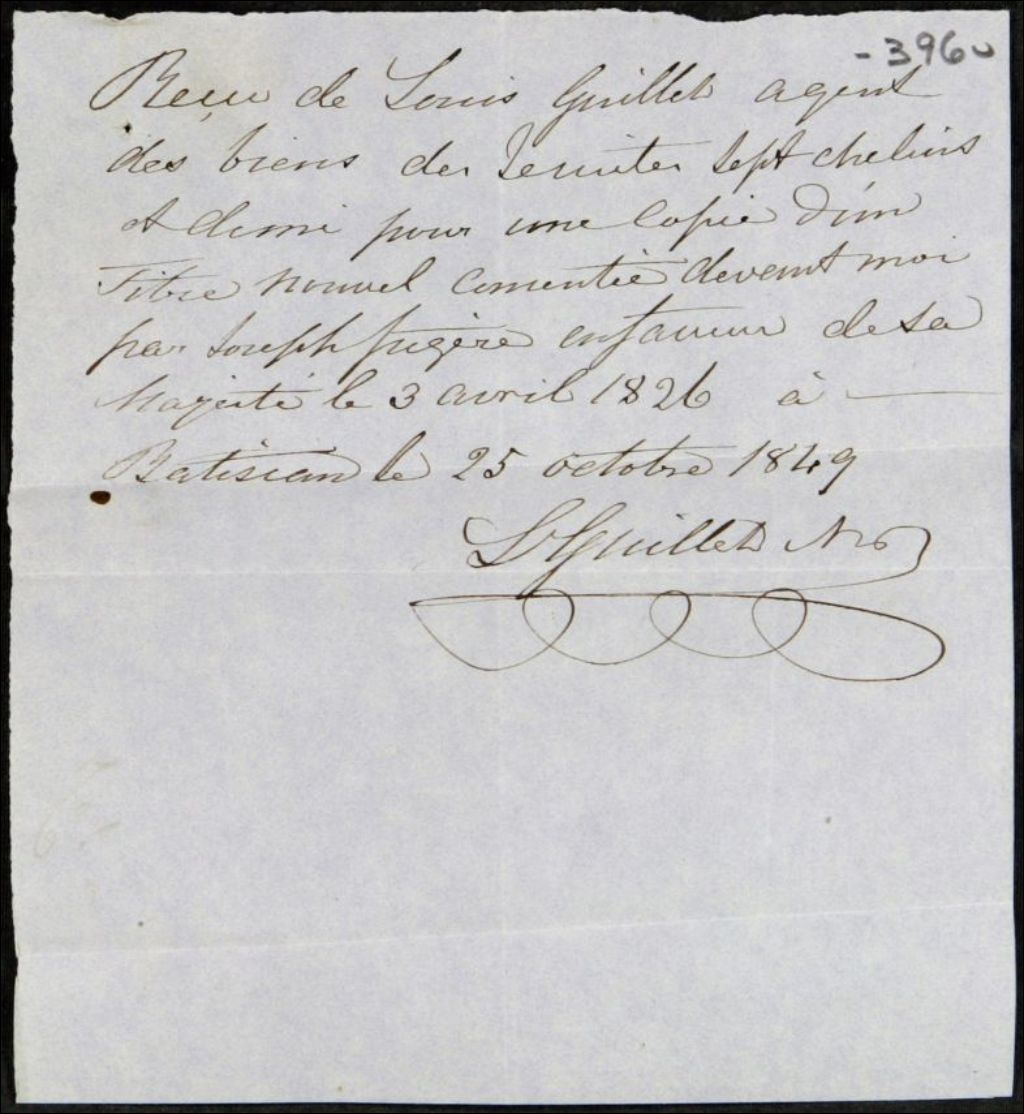 - 396
Reçu de Louis Guillet agent
des biens des Jesuites sept chelins
et demi pour une Copie d'un
Titre nouvel consentie devant moi
par Joseph frigère en faveur de Sa
Majesté le 3 avril 1826 à
Batiscan le 25 octobre 1849
L Guillet N